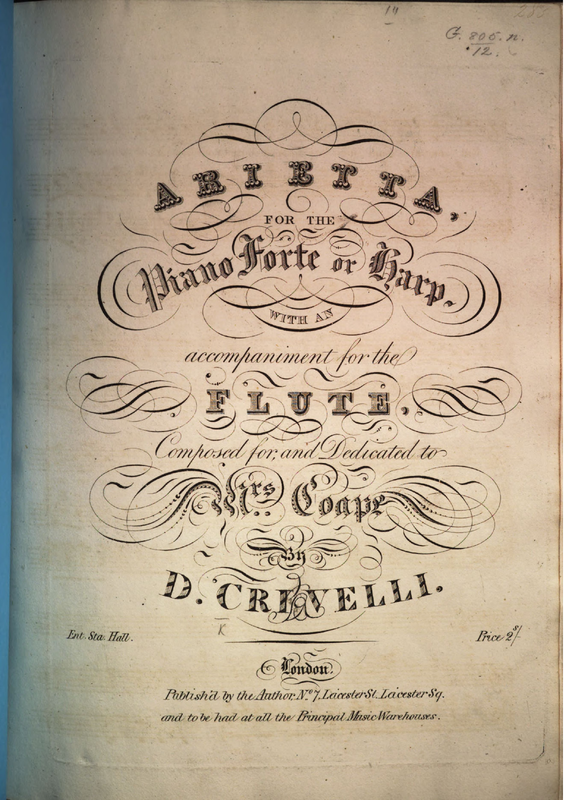 G. 806. n.
12.
ARIETTA,
FOR THE
Piano Forte or Harp.
WITH AN
accompaniment for the
FLUTE.
Composed for, and Dedicated to
Mrs. Coape
By
D. CRIVELLI.
K
Ent. Sta. Hall.
Price 2s/-
London.
Publish'd by the Author No. 7, Leicester St. Leicester Sq.
and to be had at all the Principal Music Warehouses.